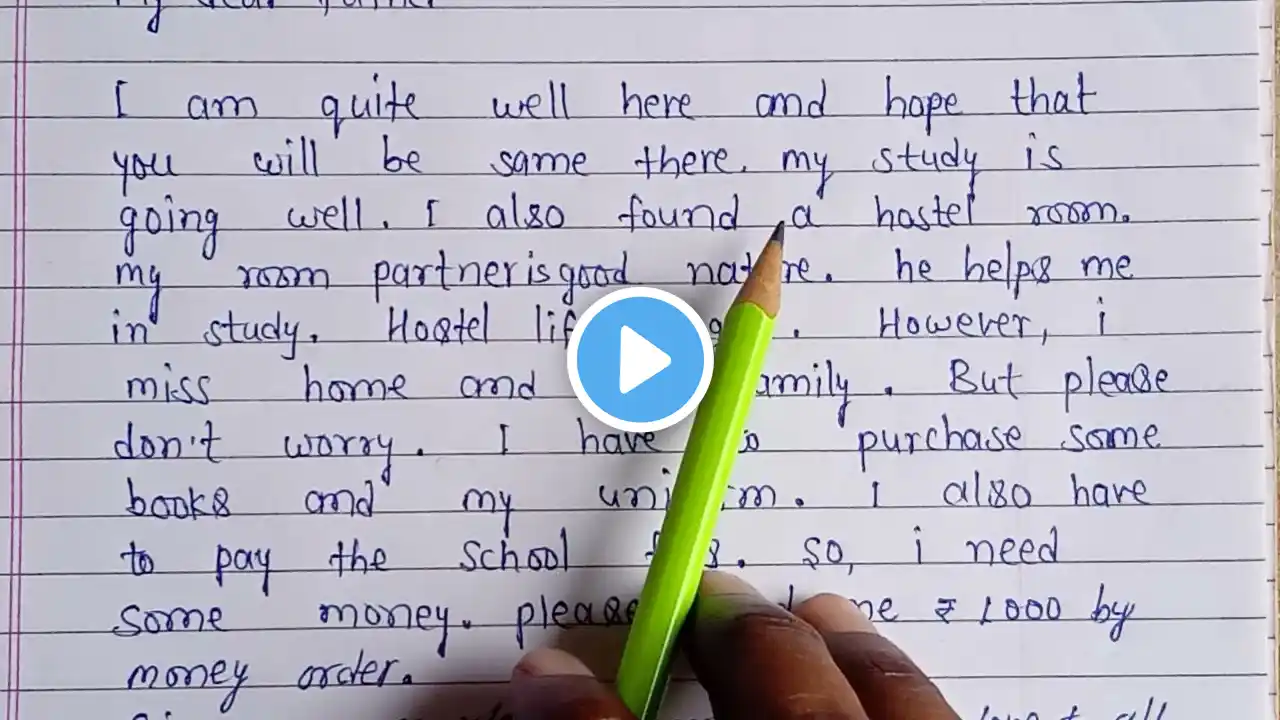 My dear father
I am quite well here and hope that
you will be same there. my study is
going well. I also found a hostel room.
my room partner is good nature. he helps me
in study. Hostel . However, i
miss home and family. But please
don't worry. I have to purchase some
books and my uniform. I also have
to pay the school . So, i need
some money. please me ₹ 1000 by
money order.
all